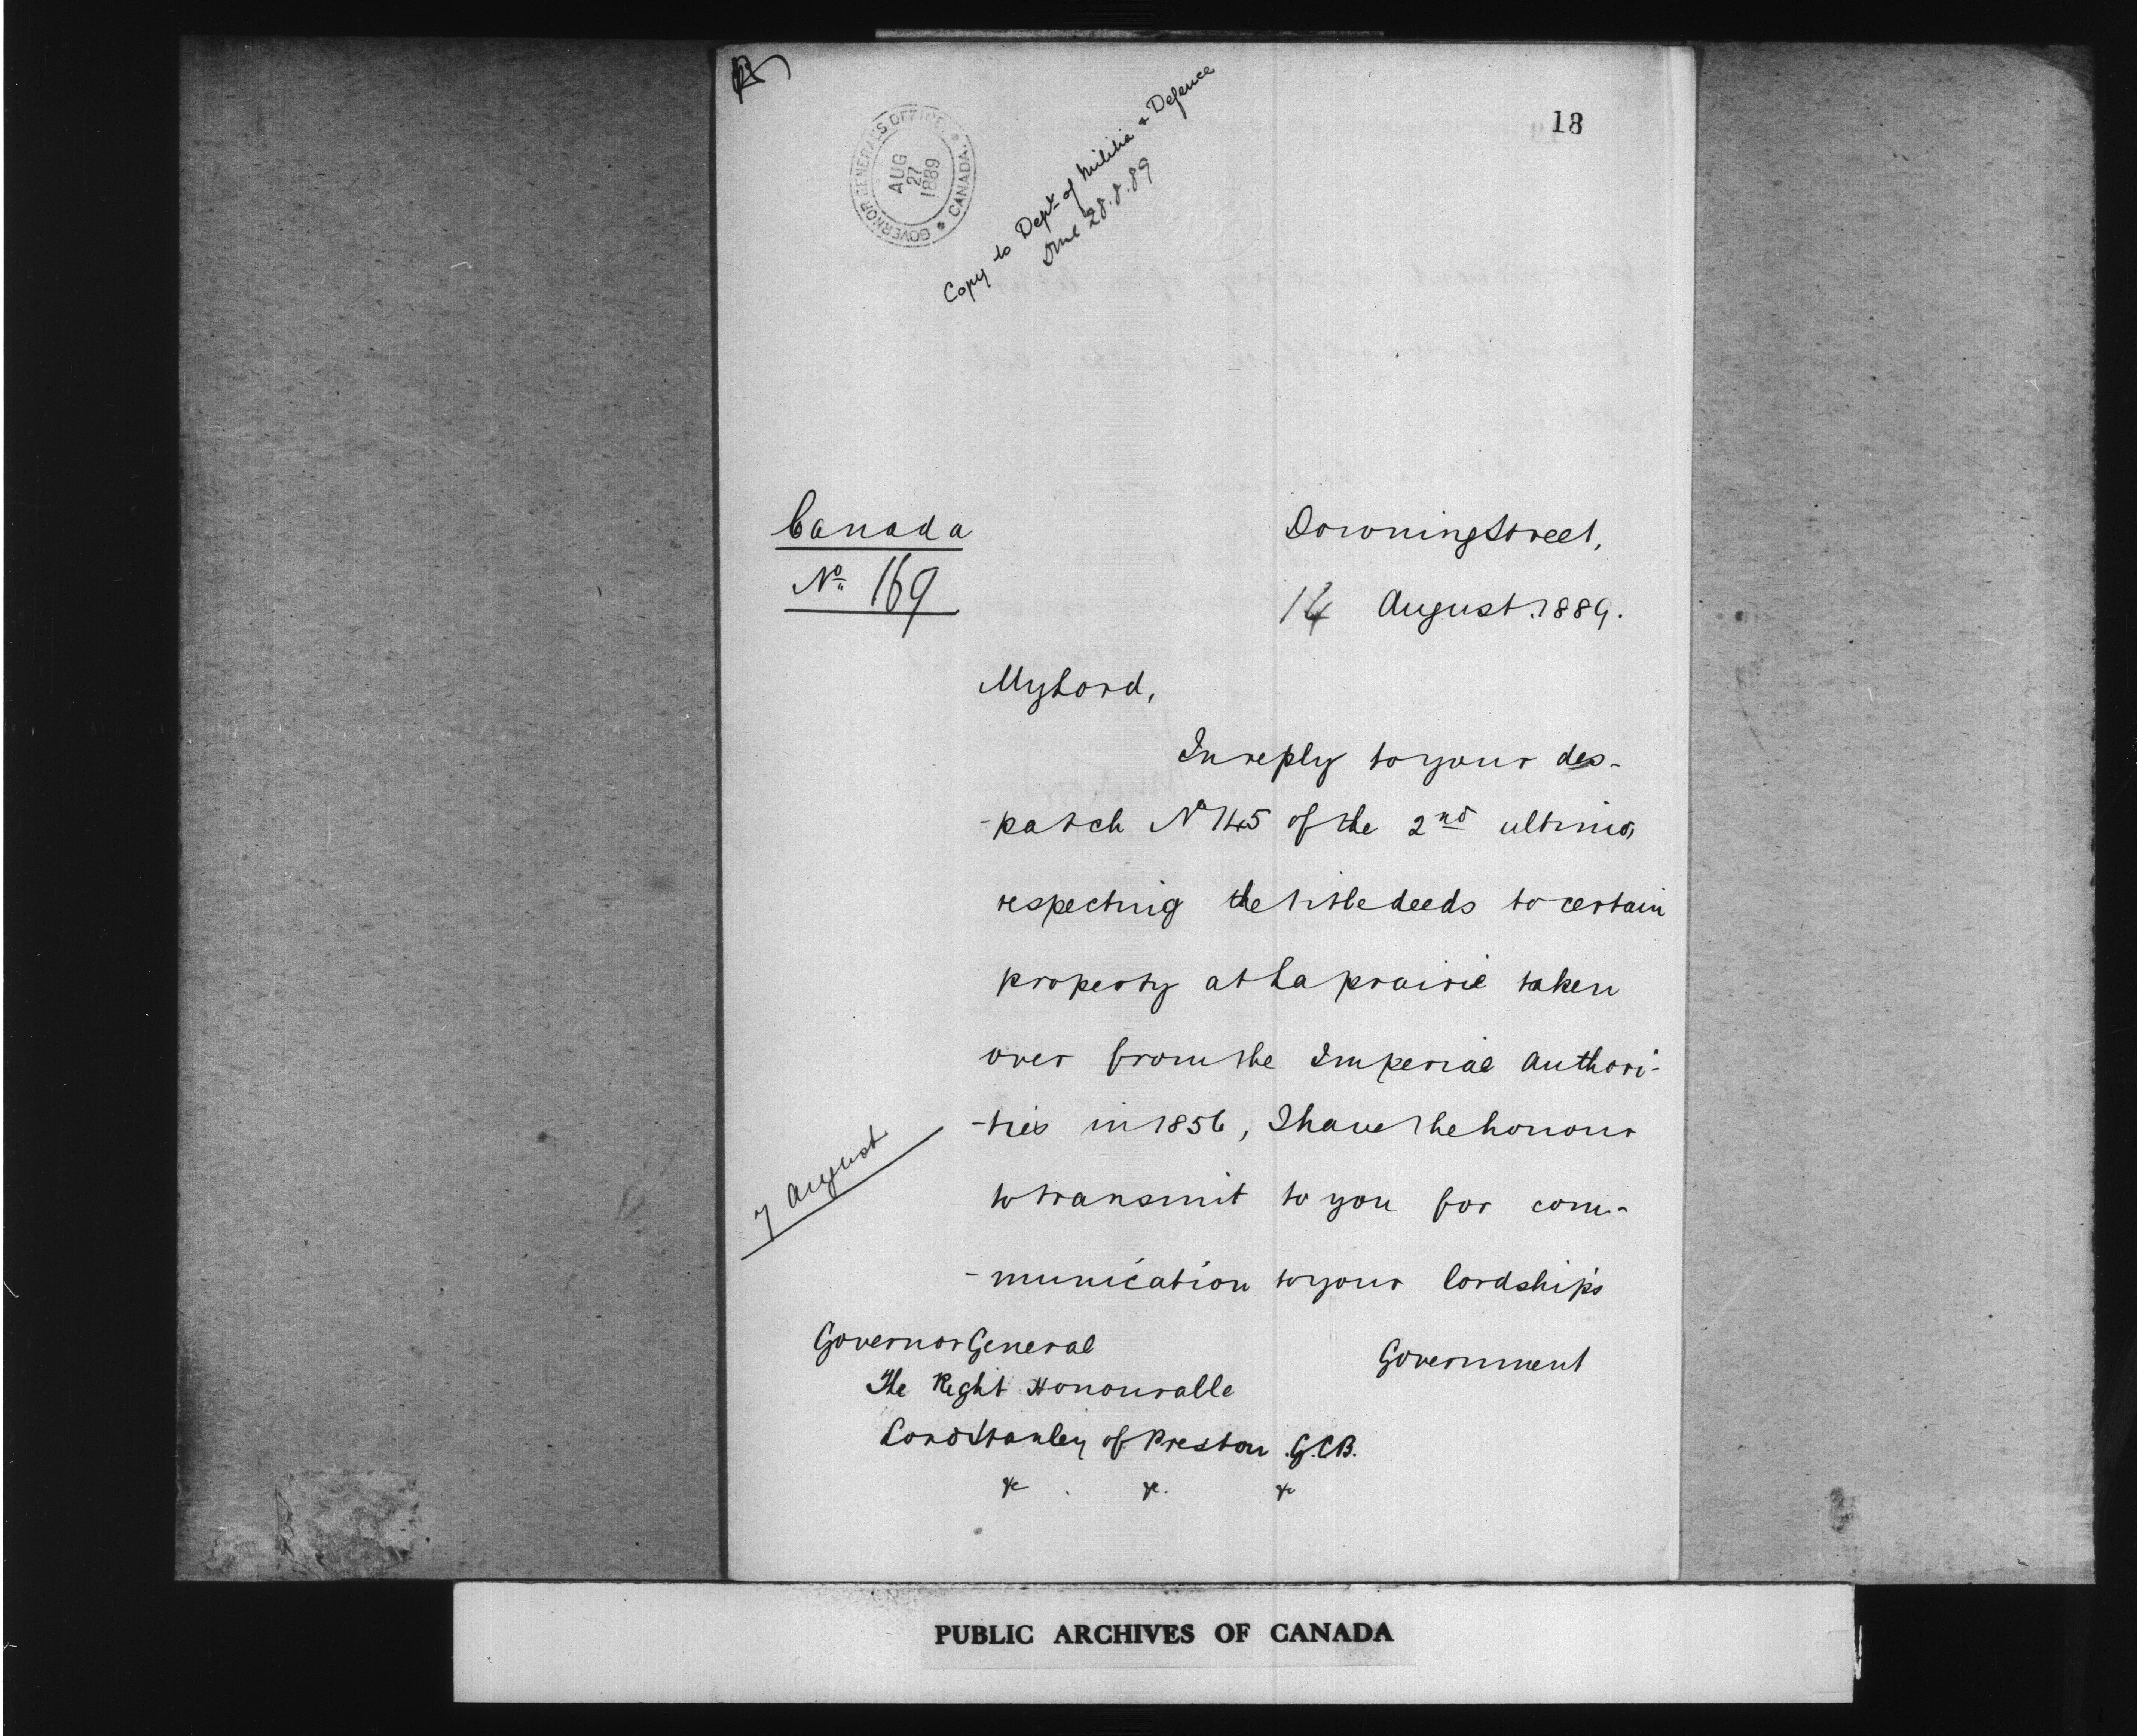 18
GOVERNOR GENERAL'S OFFICE * CANADA *
AUG
27
1889
Copy to Dept. of Militia & Defence
28.8.89
Canada
No. 169
Downing Street,
14 August. 1889.
My Lord,
In reply to your des-
-patch No 145 of the 2nd ultimo,
respecting the title deeds to certain
property at Laprairie taken
over from the Imperial Authori-
-ties in 1856, I have the honour
to transmit to you for com-
-munication to your lordship's
7 August
Government
Governor General
The Right Honourable
Lord Stanley of Preston .G.C.B.
&c . &c. &c
PUBLIC ARCHIVES OF CANADA